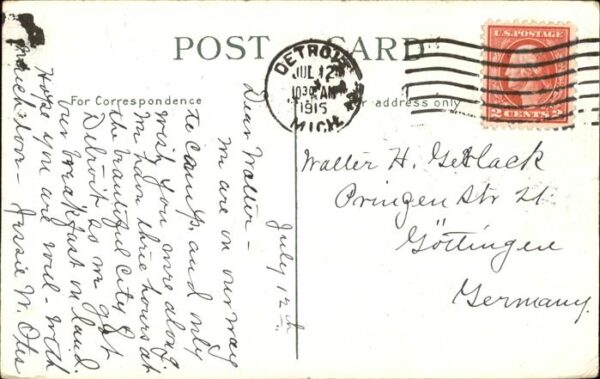 POST CARD
For Correspondence
address only
DETROIT
JUL 12
1030 AM
1915
MICH.
U.S. POSTAGE
2 CENTS 2
Walter H.
Prinzen Str 21
Göttingen
Germany.
July 12th
Dear Walter -
We are on our way
to camp and only
wish you were along.
We have three hours at
the beautiful city of
Detroit as we get
our breakfast on land.
Hope you are well - with
much love - Jessie W. Otis